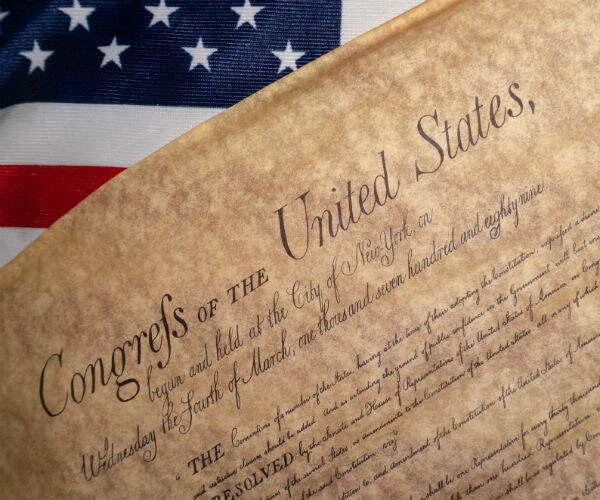 Congreſs OF THE United States,
begun and held at the City of New York, on
Wednesday the Fourth of March, one thousand seven hundred and eighty nine
THE Conventions of a number of the States, having at the time of their adopting the Constitution, expressed a desire
and restrictive clauses should be added: And as extending the ground of public confidence in the Government will best
RESOLVED by the Senate and House of Representatives of the United States of America in
of the several States as amendments to the Constitution of the United States, all or any of which
of the said Constitution, viz.
and amendment of the Constitution of the United States of America
shall be one Representative for every thirty thousand
one hundred Representatives
shall be so regulated by